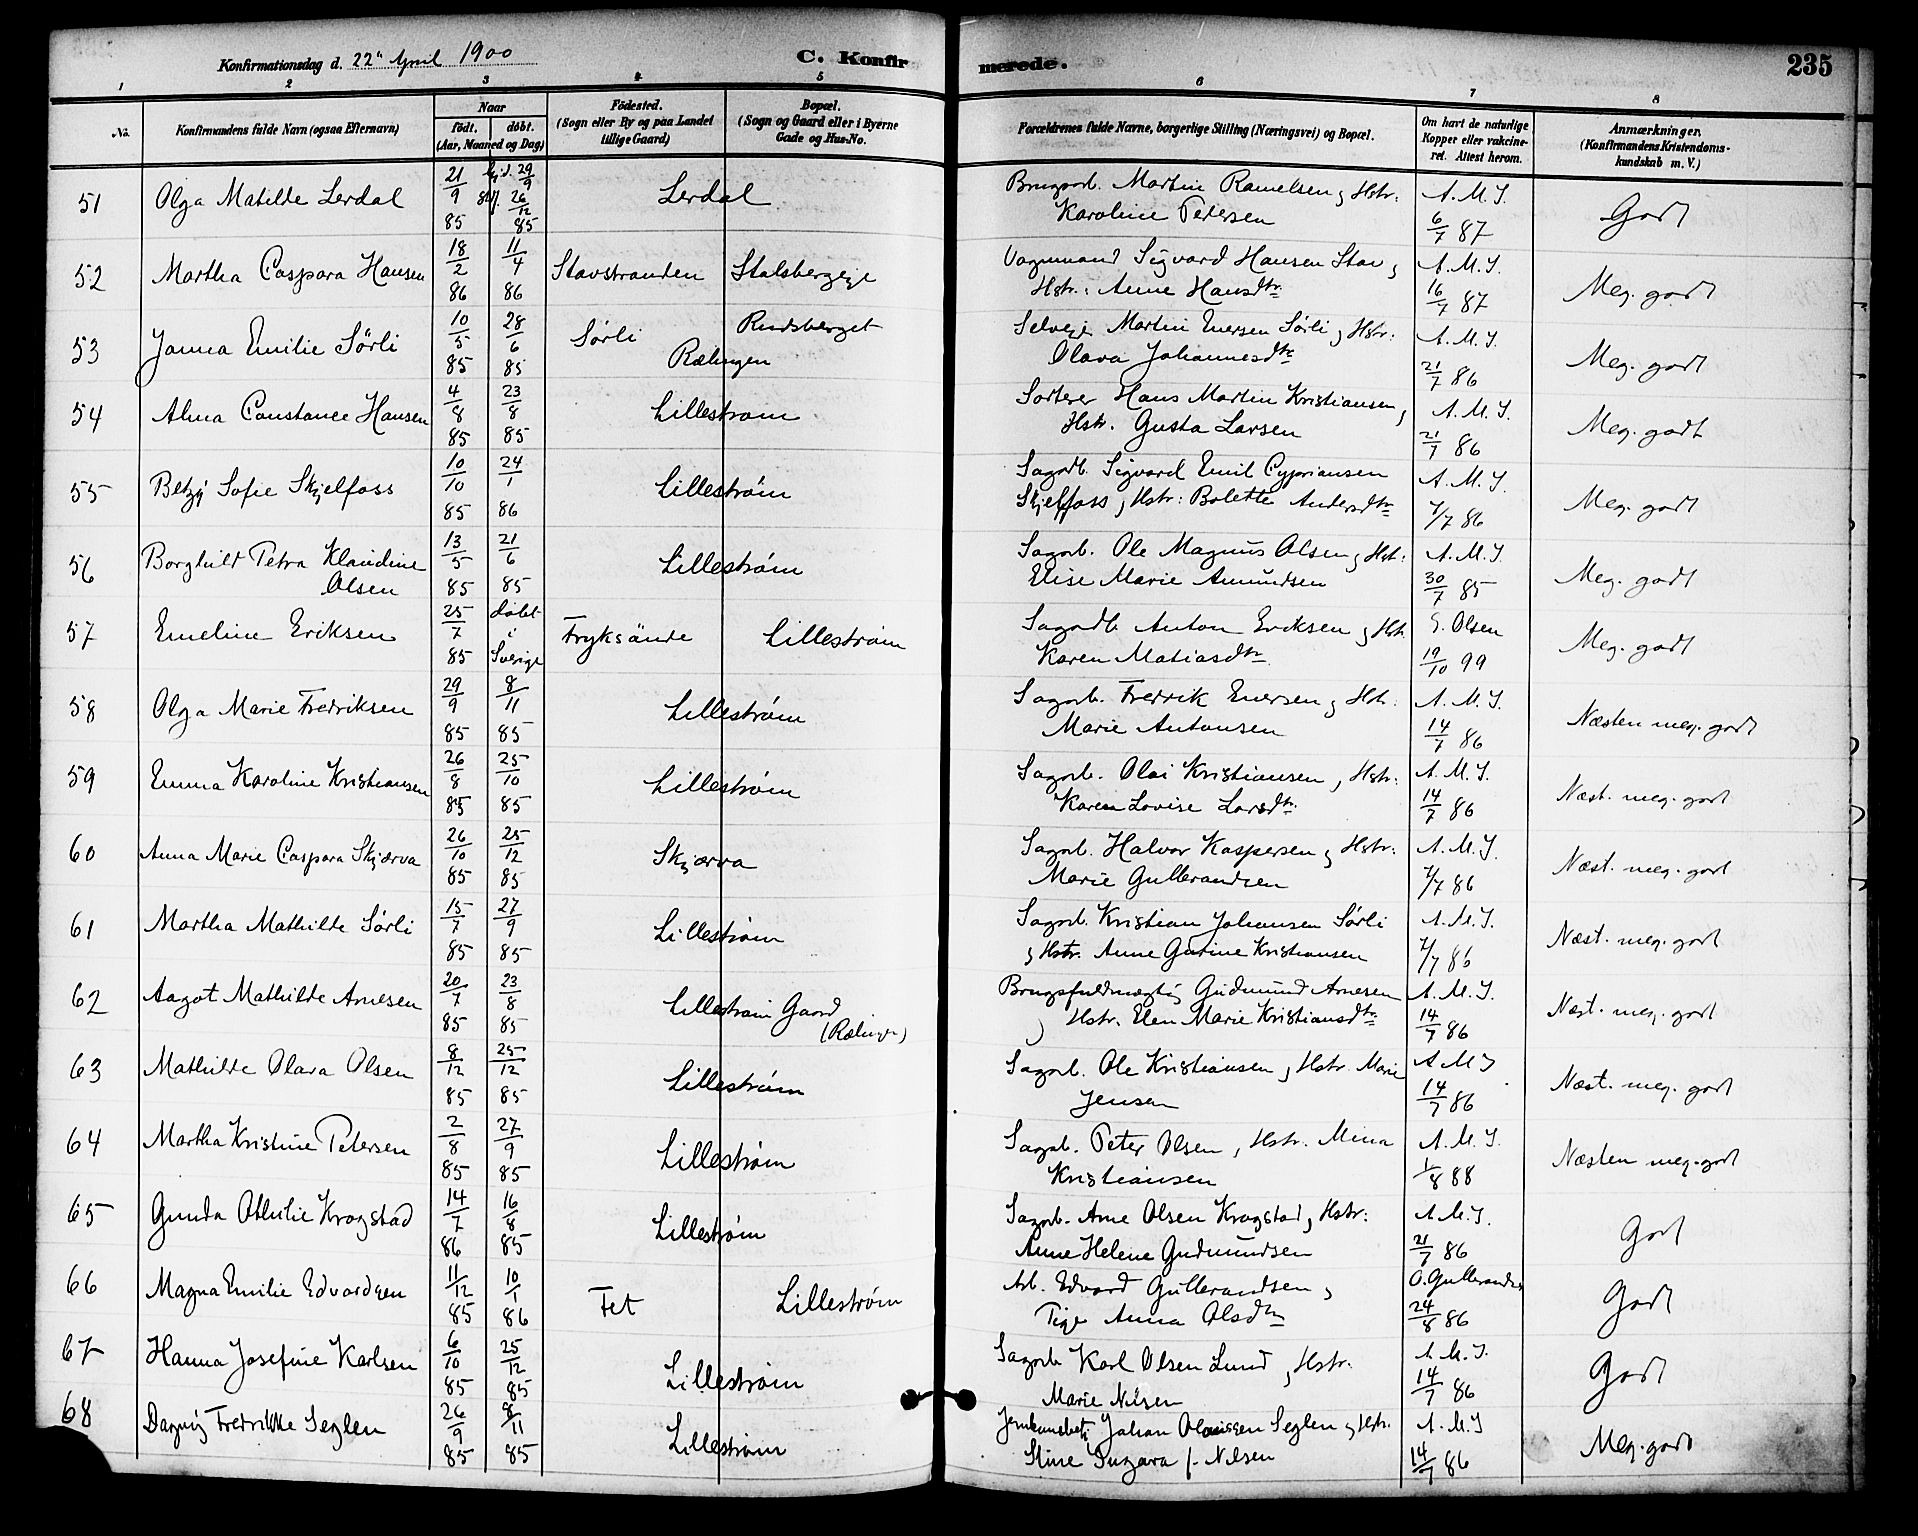 Konfirmationsdag d. 22" April 1900
C. Konfirmerede.
235
1 2 3 4 5 6 7 8
No.
Konfirmandens fulde Navn (ogsaa Efternavn)
Naar
født. døbt.
(Aar, Maaned og Dag)
Fødested.
(Sogn eller By og paa Landet
tillige Gaard)
Bopæl.
(Sogn og Gaard eller i Byerne
Gade og Hus-No.
Forældrenes fulde Navne, borgerlige Stilling (Næringsvei) og Bopæl.
Om havt de naturlige
Kopper eller vakcine-
ret. Attest herom.
Anmærkninger.
(Konfirmandens Kristendoms-
kundskab m. V.)
51 Olga Matilde Lerdal 21/9 85 29/9 26/12 85 Lerdal
Martin Ramelsen, Hstr: A. M. J.
Karoline Petersen 6/7 87 Godt
52 Martha Caspara Hansen 18/2 86 11/4 86 Stavstranden
Vognmand Sigvard Hansen Stav, A. M. J.
Hstr: Anne Hansdtr 16/7 87 Meg. godt
53 Janna Emilie Sørli 10/5 85 28/6 85 Sørli Rudsberget
Rælingen
Selveje Martin Iversen Sørli, Hstr: A. M. J.
Olava Johannesdtr 21/7 86 Meg. godt
54 Alma Constance Hansen 4/8 85 23/8 85 Lillestrøm
Sorterer Hans Martin Kristiansen, A. M. J.
Hstr. Gusta Larsen 21/7 86 Meg. godt
55 Betzy Sofie Skjelfoss 10/10 85 24/1 86 Lillestrøm
Sagarb. Sigvard Emil Cypriansen A. M. J.
Skjelfoss, Hstr: Bolette Andersdtr 7/7 86 Meg. godt
56 Borghild Petra Klaudine
Olsen 13/5 85 21/6 85 Lillestrøm
Sagarb. Ole Magnus Olsen, Hstr: A. M. J.
Elise Marie Amundsen 30/7 85 Meg. godt
57 Emeline Eriksen 25/7 85 døbt i Sverige Fryksände Lillestrøm
Sagarb. Anton Eriksen, Hstr Olsen
Karen Matiasdtr 19/10 99 Meg. godt
58 Olga Marie Fredriksen 29/9 85 8/11 85 Lillestrøm
Sagarb. Fredrik Enersen, Hstr: A. M. J.
Marie Antonsen 14/7 86 Næsten meg. godt
59 Emma Karoline Kristiansen 26/8 85 25/10 85 Lillestrøm
Sagarb. Olai Kristiansen, Hstr: A. M. J.
Karen Lovise Larsdtr. 14/7 86 Næst. meg. godt
60 Anna Marie Caspara Skjærva 26/10 85 25/12 85 Skjærva
Sagarb. Halvor Kaspersen, Hstr: A. M. J.
Marie Gulbrandsen 7/7 86 Næst. meg. godt
61 Martha Mathilde Sørli 15/7 85 27/9 85 Lillestrøm
Sagarb. Kristian Johansen Sørli A. M. J.
, Hstr. Anne Gurine Kristiansen 7/7 86 Næst. meg. godt
62 Aagot Mathilde Arnesen 20/7 85 23/8 85 Lillestrøm Gaard
(Rælingen)
Brugsfuldmægtig Gudmund Arnesen A. M. J.
, Hstr. Elen Marie Kristiansdtr 14/7 86 Næst. meg. godt
63 Mathilde Olava Olsen 8/12 85 25/12 85 Lillestrøm
Sagarb. Ole Kristiansen, Hstr. Marie A. M. J
Jensen 14/7 86 Næst. meg. godt
64 Martha Kristine Petersen 2/8 85 27/9 85 Lillestrøm
Sagarb. Peter Olsen, Hstr. Mina A. M. J.
Kristiansen 1/8 88 Næsten meg. godt
65 Gunda Othilie Krogstad 14/7 86 16/8 85 Lillestrøm
Sagarb. Arne Olsen Krogstad, Hstr: A. M. J.
Anne Helene Gudmundsen 21/7 86 Godt
66 Magna Emilie Edvardsen 11/12 85 10/1 86 Fet Lillestrøm
Arb. Edvard Gulbrandsen, O. Gulbrandsen
Pige Anna Olsdtr 24/8 86 Godt
67 Hanna Josefine Karlsen 6/10 85 25/12 85 Lillestrøm
Sagarb Karl Olsen Lund, Hstr. A. M. J.
Marie Nilsen 14/7 86 Godt
68 Dagny Fredrikke Seglen 26/9 85 8/11 85 Lillestrøm
Johan Olaussen Seglen, Hstr. A. M. J
Stine f. Nilsen 14/7 86 Meg. godt